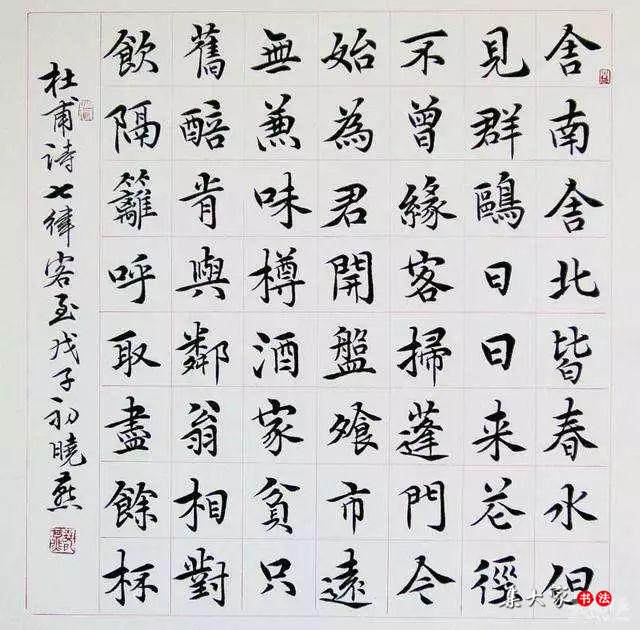 舍南舍北皆春水但
見群鷗日日来花徑
不曾緣客掃蓬門今
始為君開盤飧市遠
無兼味樽酒家貧只
舊醅肯與鄰翁相對
飲隔籬呼取盡餘杯
杜甫詩七律客至戊子初曉燕
集大家书法